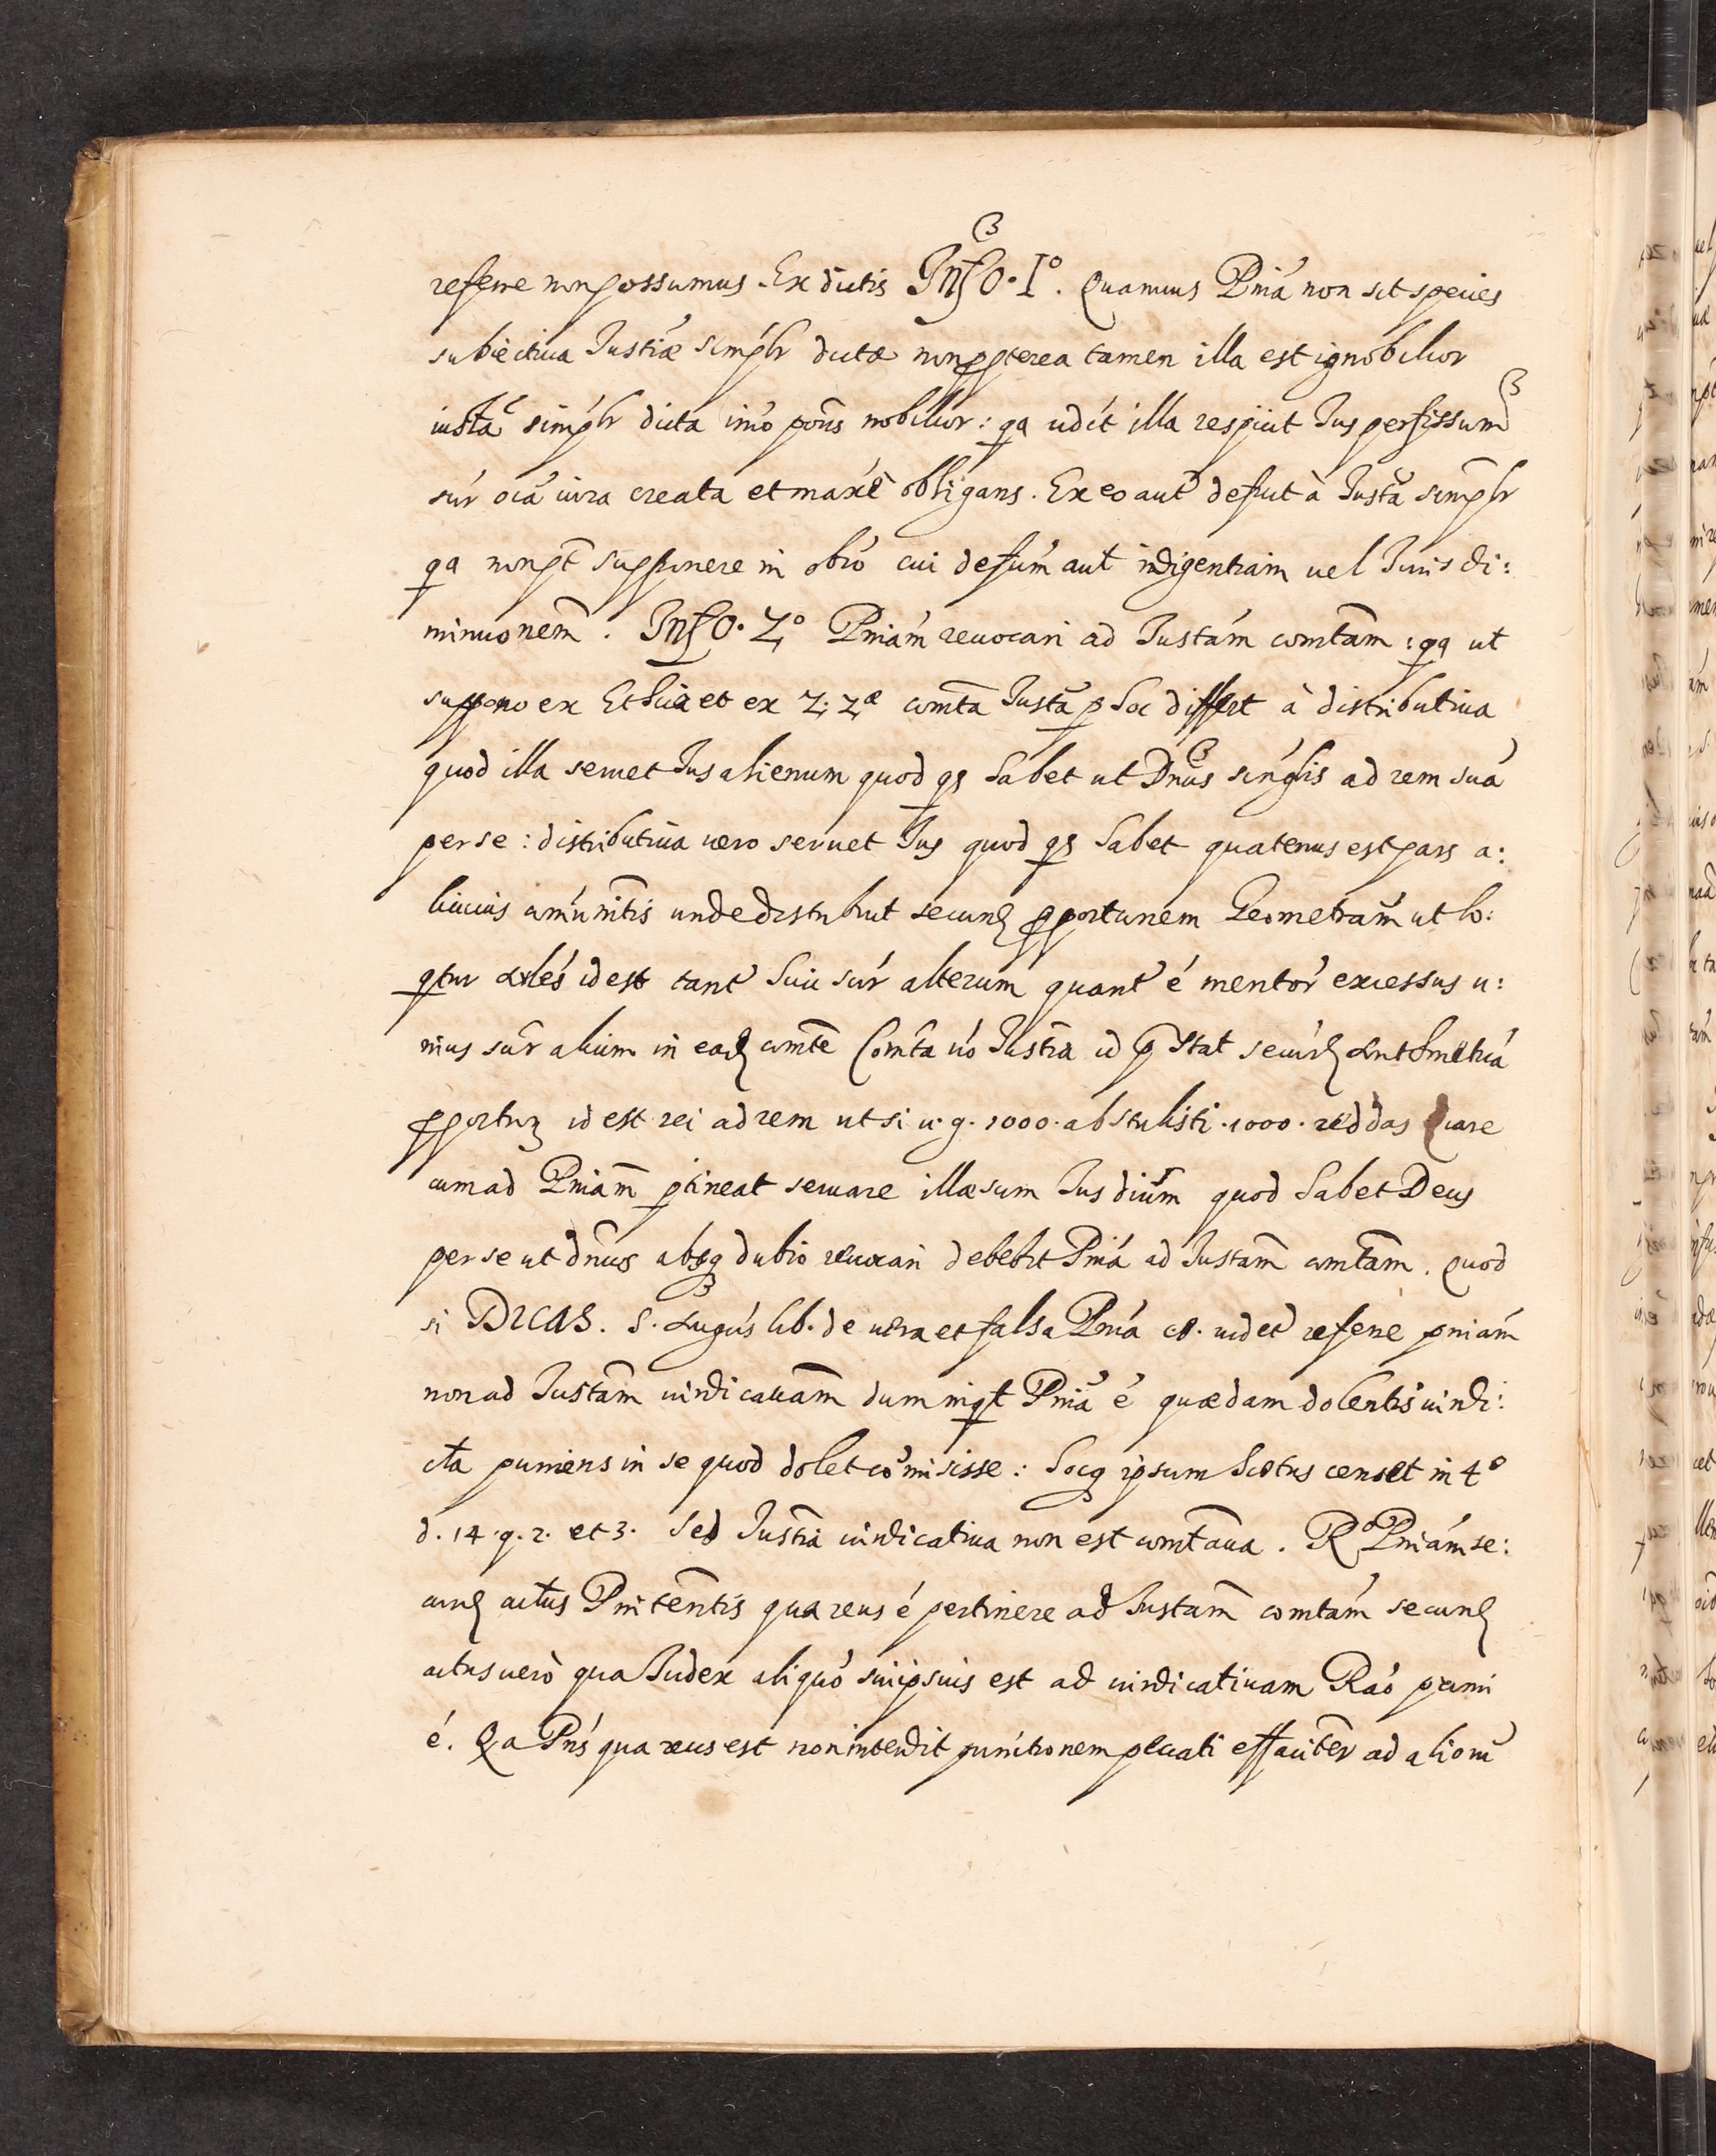 referre non possumus. Ex dictis Info. 1º. Quamuis Pnia non sit species
subiectiua Justiæ simplr dictæ non ppterea tamen illa est ignobilior
iusta simplr dicta imo pons nobilior: qa udet illa respicit Jus perfissum
supr oia iura creata et maxe obligans. Ex eo aut deficit à Justa simplr
qa non pt supponere in obio cui defum aut indigentiam uel Juris di:
minuonem. Info. 2º Pniam reuocari ad Justam comtam: qa ut
suppono ex Ethica et ex 2. 2æ comta Justa p hoc differt à distributiua
quod illa seruet Jus alienum quod qs habet ut Dnus singlis ad rem sua
per se: distributiua uero seruet Jus quod qs habet quatenus est pars a:
licuius comunitis unde distribuit secund pportionem Geometram ut lo:
qtur Arles id est tant huic supr alterum quant é mentor excessus u:
nius supr alium in ead comte Comta uo Justia id pstat secund Arithmetica
pportion id est rei ad rem ut si u. g. 1000. abstulisti. 1000. reddas Quare
cum ad Pniam ptineat seruare illæsum Jus diuum quod habet Deus
per se ut dnus absq dubio reuocari debebit Pnia ad Justam comtam. Quod
si DICAS. S. Augus lib. de uera et falsa Pnia c8. uidet referre pniam
non ad Justam uindicatiuam dum inqt Pnia é quædam dolentis uindi:
cta puniens in se quod dolet comisisse: hocq ipsum Scotus censet in 4º
d. 14. q. 2. et 3. Sed Justia uindicatiua non est comtaua. Rº Pniam se:
cund actus Pnitentis qua reus é pertinere ad Justam comtam secund
actus uerò qua Judex aliquo sui ipsius est ad uindicatiuam Rao primi
é. Qa Pns qua reus est non intendit punitionem peccati efficaciter ad aliorum